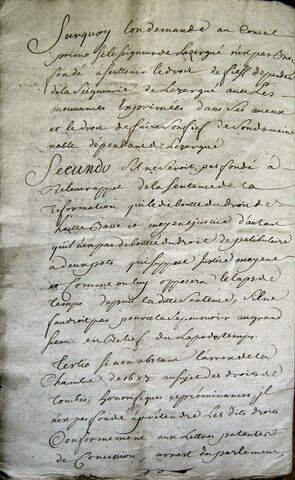 Surquoy l'on demande au Conseil
primo si le Seigneur de Lezergué n'est pas bien
fondé a soutenir le droit de fieff dependant
de la Seigneurie de Lezergué aux
mouvances Exprimées dans ses aveux
et le droit de faire
noble dependant de Lezergué
Secundo S'il ne seroit pas fondé a
Relever appel de la Sentence de la
reformation qui le deboutte du droit de
haute Basse et moyenne justice d'autant
qu'il n'est pas deboutté du droit de patibulaire
a deux pots qui suppose justice moyene
et Comme on luy opposera le laps de
temps depuis la ditte Sentence, s'il ne
faudroit pas pour cela se pourvoir au grand
Sceau en Relief du Laps de temps.
Tertio si nonobstant larrest de la
Chambre de 1682 au sujet des droits de
tombes, honorifiques et préminances, il
n'est pas fondé a pretendre Les dits droits
Conformement aux Lettres patentes
de Concession, arrest du parlement